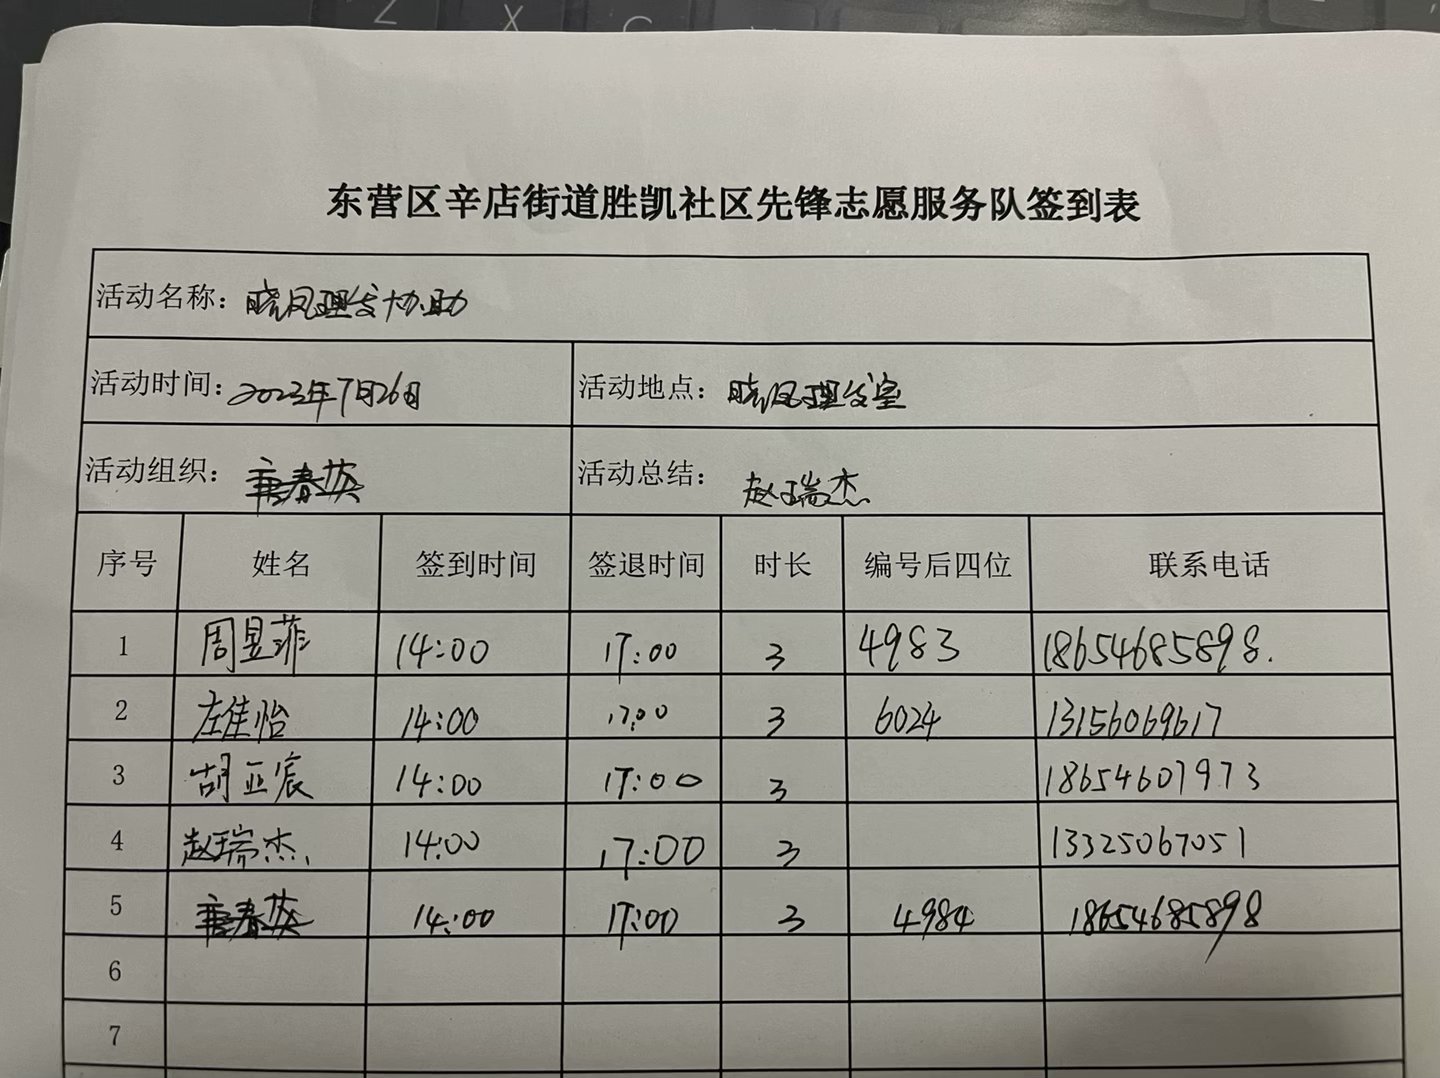 东营区辛店街道胜凯社区先锋志愿服务队签到表
活动名称：晓凤理发协助
活动时间：2023年7月26日 活动地点：晓凤理发室
活动组织：唐春英 活动总结：赵瑞杰
序号 姓名 签到时间 签退时间 时长 编号后四位 联系电话
1 周昱菲 14:00 17:00 3 4983 18654685898.
2 左佳怡 14:00 17:00 3 6024 13156069617
3 胡亚宸 14:00 17:00 3 18654607973
4 赵瑞杰 14:00 17:00 3 13325067051
5 唐春英 14:00 17:00 3 4984 18654685898
6
7